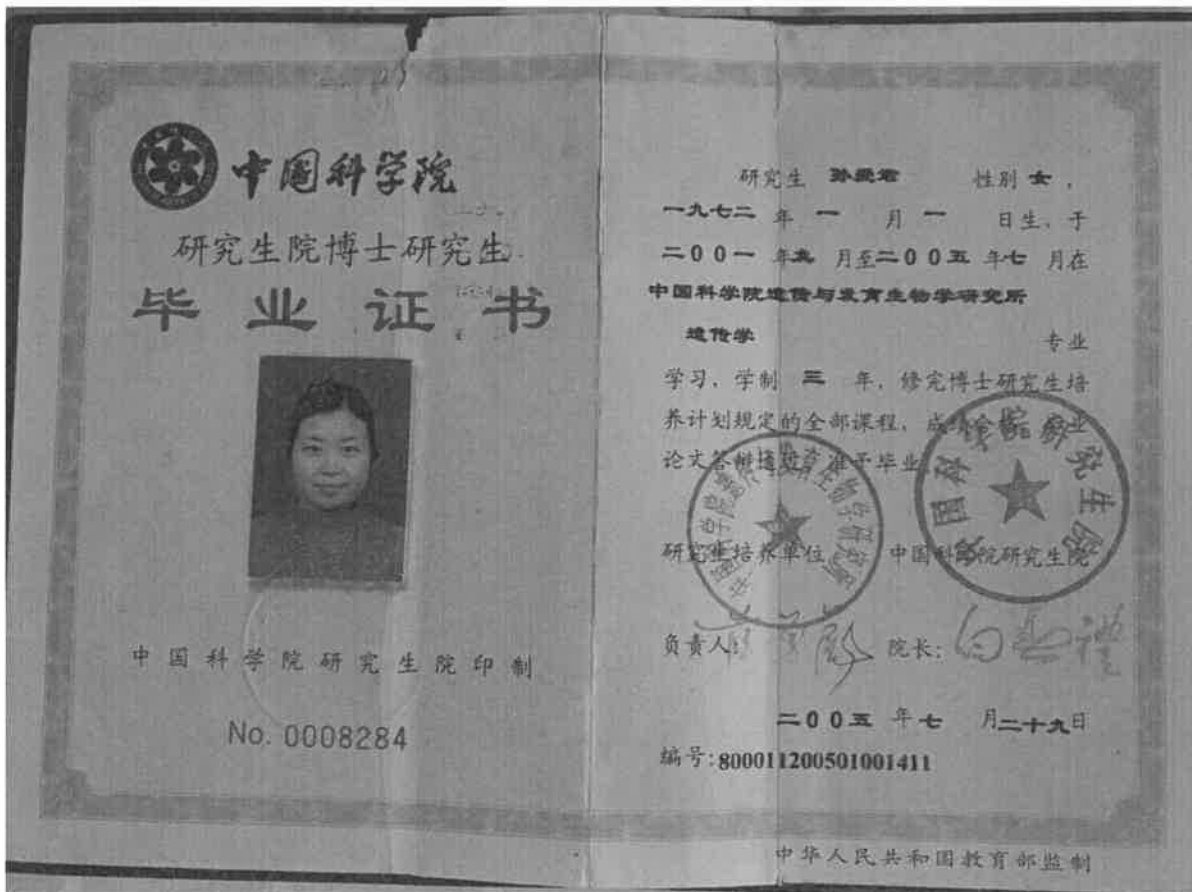 中国科学院
研究生院博士研究生
毕业证书
中国科学院研究生院印制
No. 0008284
研究生 性别 女，
一九七二 年 一 月 一 日生、于
二00一 年九 月至二00五 年七 月在
中国科学院遗传与发育生物学研究所
遗传学 专业
学习、学制 三 年，修完博士研究生培
养计划规定的全部课程，成绩合格，毕业
论文答辩通过，准予毕业
研究生培养单位 中国科学院研究生院
负责人: 院长:
二00五 年七 月二十九日
编号:800011200501001411
中华人民共和国教育部监制